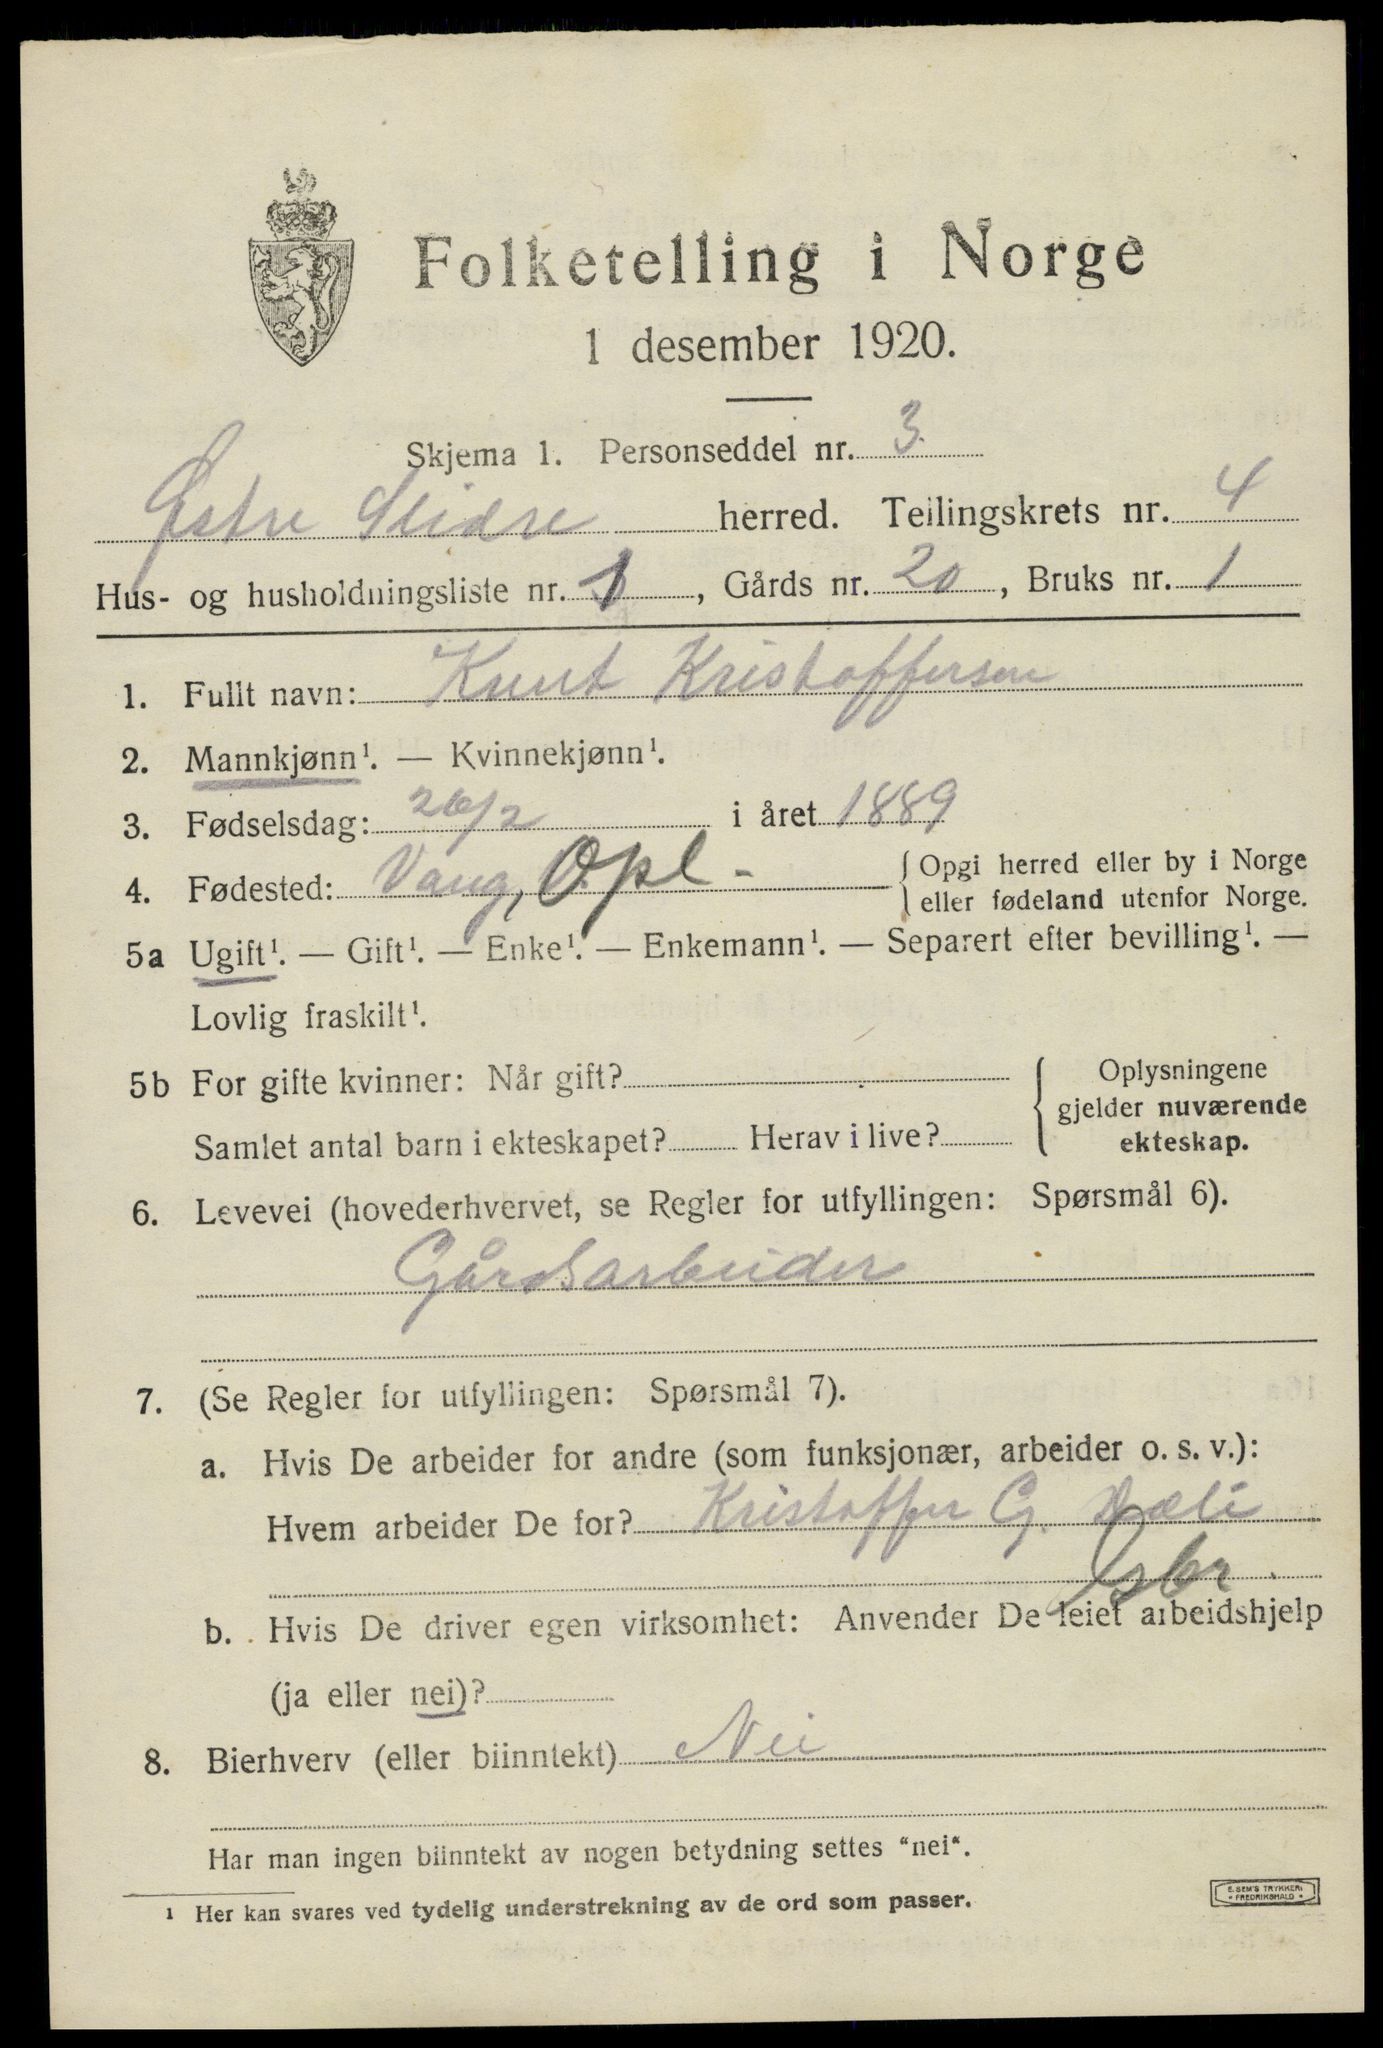 Folketelling i Norge
1 desember 1920.
Skjema 1. Personseddel nr. 3.
Østre Slidre herred. Tellingskrets nr. 4
Hus- og husholdningsliste nr. 1, Gårds nr. 20, Bruks nr. 1
1. Fullt navn: Knut Kristoffersen
2. Mannkjønn¹. — Kvinnekjønn¹.
3. Fødselsdag: 26/2 i året 1889
4. Fødested: Vang, Opl - { Opgi herred eller by i Norge
eller fødeland utenfor Norge.
5a Ugift¹. — Gift¹. — Enke¹. — Enkemann¹. — Separert efter bevilling¹. —
Lovlig fraskilt¹.
5b For gifte kvinner: Når gift? { Oplysningene
gjelder nuværende
Samlet antal barn i ekteskapet? Herav i live? ekteskap.
6. Levevei (hovederhvervet, se Regler for utfyllingen: Spørsmål 6).
Gårdsarbeider
7. (Se Regler for utfyllingen: Spørsmål 7).
a. Hvis De arbeider for andre (som funksjonær, arbeider o. s. v.):
Hvem arbeider De for? Kristoffer G. Dæli
Gsbr.
b. Hvis De driver egen virksomhet: Anvender De leiet arbeidshjelp
(ja eller nei)?
8. Bierhverv (eller biinntekt) Nei
Har man ingen biinntekt av nogen betydning settes "nei".
¹ Her kan svares ved tydelig understrekning av de ord som passer.
E. SEM'S TRYKKERI
FREDRIKSHALD